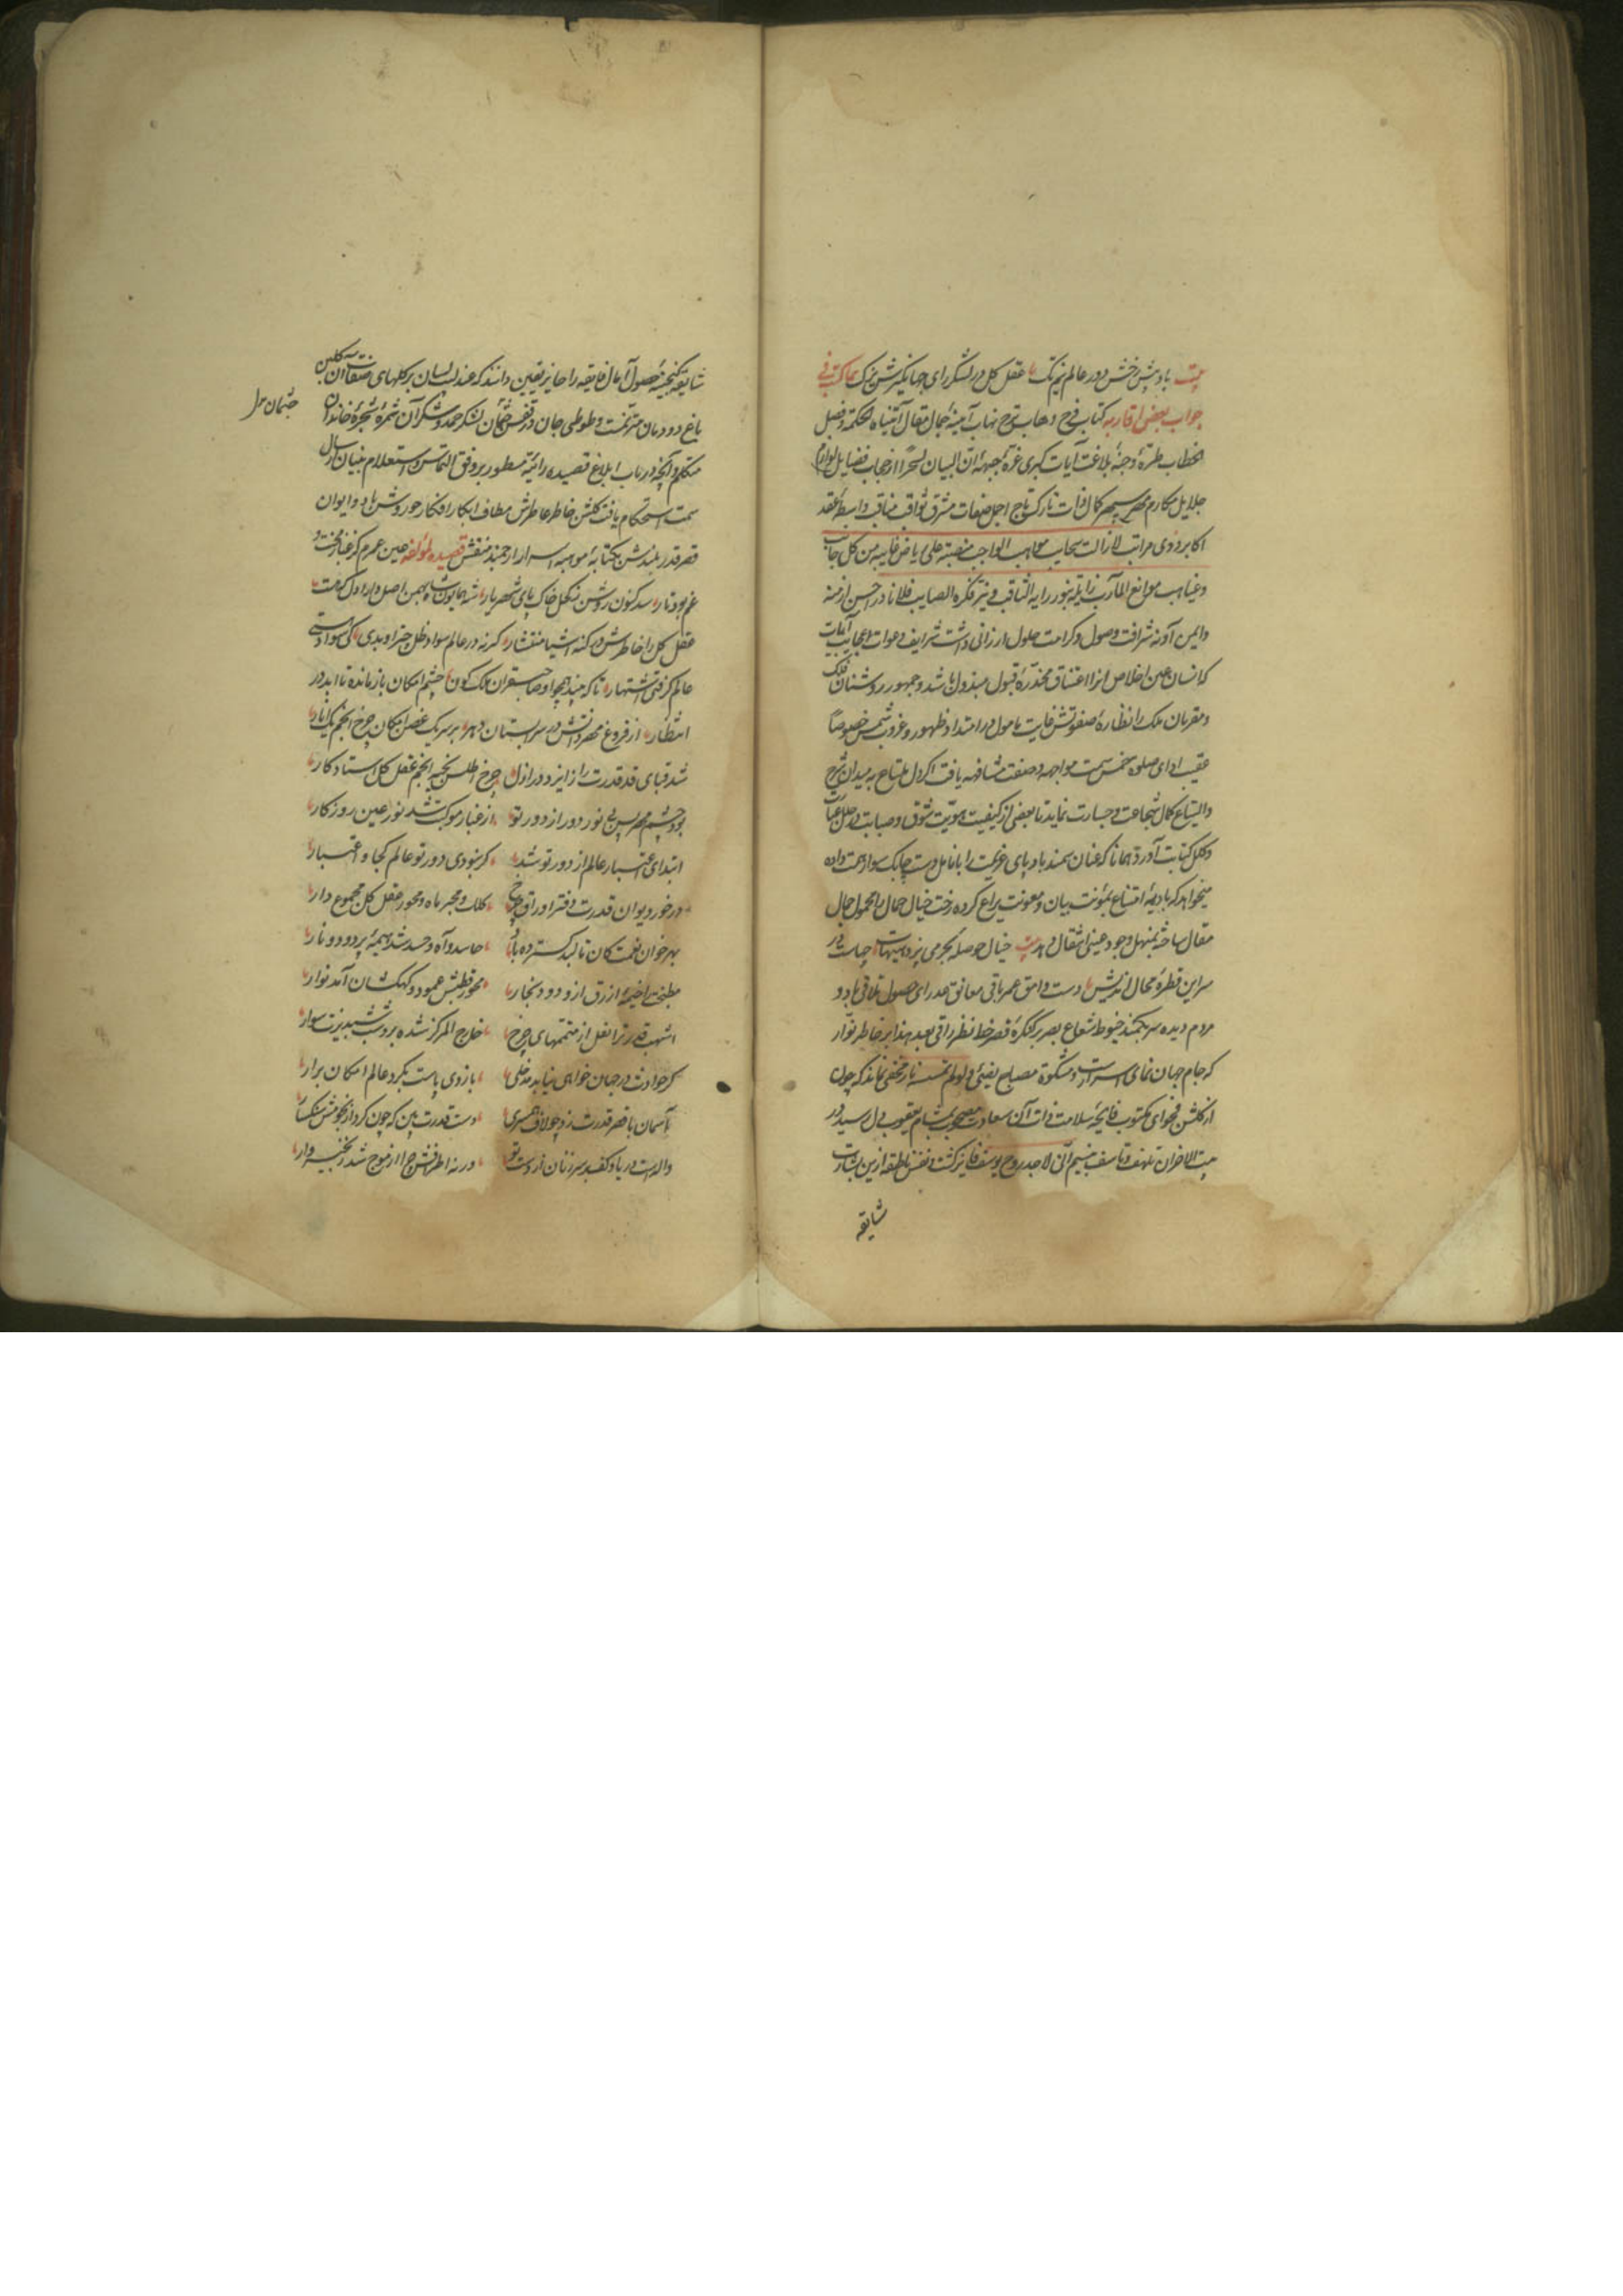 بیت باد پیش رخش دور عالم نیم تک عقل کل در لشکر رای جهانگیرش یزک مما کتب فی
جواب بعض اقاربه کتاب فرح وهاب ترح نهاب آیینهٔ جمال مقال آتیناه الحکمة وفصل
الخطاب طرهٔ وجنهٔ بلاغت آیات کبری غرهٔ جبههٔ ان البیان لسحرا از جناب فضایل لوا
جلایل مکارم مهر سپهر کمال ذات تارک تاج اجل صفات مشرق ثواقب مناقب واسطهٔ عقد
اکابر ذوی مراتب لازالت سحایب مواهب الواجب منصبة علی ریاض من کل جانب
وغیاهب موانع المآرب زایلة بنور رایه الثاقب و فکره الصایب فلانا در احسن ازمنه
وایمن آونه شرافت وصول وکرامت حلول ارزانی داشت شرایف دعوات اجابت آیات
که انسان عین اخلاص انرا اعتناق مخدرهٔ قبول مبذول باشد وجمهور روشنان فلک
ومقربان ملک را نظارهٔ صفوتش غایت مامول در امتداد ظهور وغروب شمس خصوصاً
عقیب ادای صلوة خمس سمت مواجهه وصفت مشافهه یافت اگر دل ملتاع به میدان شرح
والتیاع کمال شجاعت وجسارت نماید تا بعضی از کیفیت هویت شوق وصبابت در حلل عبارت
وکلل کتابت آورد همانا که عنان سمند بادپای عزیمت را بانامل دست چابک سوار همت داده
میخواهد که بادیهٔ امتناع بمئونت بیان ومعونت یراع کرده رخت خیال محال را محمول جمال
مقال ساخته بمنهل وجود عینی انتقال دهد بیت خیال حوصلهٔ بحر می پزد هیهات چهاست در
سر این قطرهٔ محال اندیش دست وامق عمر باقی معانق عذرای حصول تلاقی باد و
مردم دیده سر بکمند خیوط شعاع بصر بر کنگرهٔ قصر خط نظر راقی بعد هذا بر خاطر نوار
که جام جهان نمای اسرارست ومشکوة مصباح یضئ ولو لم تمسسه نار مخفی نماند که چون
از گلشن فحوای مکتوب فایحهٔ سلامت ذات آن سعادت مصحوب بمشام یعقوب دل رسید در
بیت الاحزان تلهف وتاسف بنسیم انی لاجد روح یوسف فایز گشت ونفس ناطقه ازین بشارت
شایقه
شایقه گنجینهٔ حصول آمال فایقه را حایز بیقین دانند که عندلیب لسان بر گلهای صفات آن گلبن
باغ دودمان مترنمست وطوطی جان در قفس جثمان بشکر حمد وشکر آن ثمرهٔ شجرهٔ خاندان
متکلم وآنچه در باب ابلاغ قصیده رائیهٔ مسطور بر وفق التماس واستعلام بنیان ارسال
سمت استحکام یافت گلشن خاطر عاطرش مطاف ابکار افکار حور وش باد و ایوان
قصر قدر بلندش بکتابهٔ مواهب اسرار ارجمند منقش قصیده لمؤلفه عین عمرم کز غبار محنت و
غم بود تار شد کنون روشن ز کحل خاک پای شهریار شه همایون شاه بهمن اصل دارا دل که هست
عقل کل را خاطرش در کنه اشیا مستشار گرنه در عالم سواد ظل چتر او بدی کی سواد هستی
عالم گرفتی اشتهار تا که بیند همچو او صاحبقران ملک کون چشم امکان باز مانده تا ابد در
انتظار از فروغ مهر دانش در سرابستان دهر بر سر یک غصن امکان چرخ وانجم یک انار
شد قبای قد قدرت را از ایزد در ازل چرخ اطلس بخیه انجم عقل کل استاد کار
بود چشم مهر بس بی نور دور از دور تو از غبار موکبت شد نور عین روزگار
ابتدای اعتبار عالم از دور تو شد گر نبودی دور تو عالم کجا و اعتبار
در خور دیوان قدرت دفتر اوراق چرخ کلک ومحبر ماه ومحور عقل کل مجموع دار
بهر خوان نعمتت کان تا ابد گسترده باد حاسد وآه وحسد شد هیمهٔ پر دود و نار
مطبخت را خیمهٔ ازرق از و دود بخار محور قطبش عمود و کهکشان آمد نوار
اشهب قدر ترا نعل از متممهای چرخ خارج المرکز شده بر وی شب شبدیزت سوار
گر حوادث در جهان خواهی نیابد مدخلی بازوی یاست بگرد عالم امکان برار
آسمان با قصر قدرت زد چو لاف همسری دست قدرت بین که چون کرد از نجومش سنگسار
والهست دریا وکف بر سر زنان از دست تو ورنه اطرافش چرا از موج شد زنجیر وار
جثمان مرا